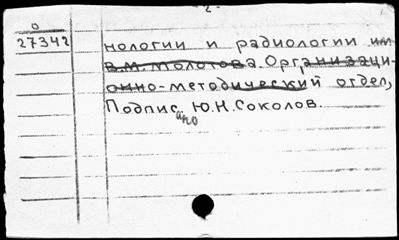 - 2 -
О
27342
нологии и радиологии им
В.М. Молотова. Организаци-
онно-методический отдел,
Подпис. Ю.Н. Соколов.